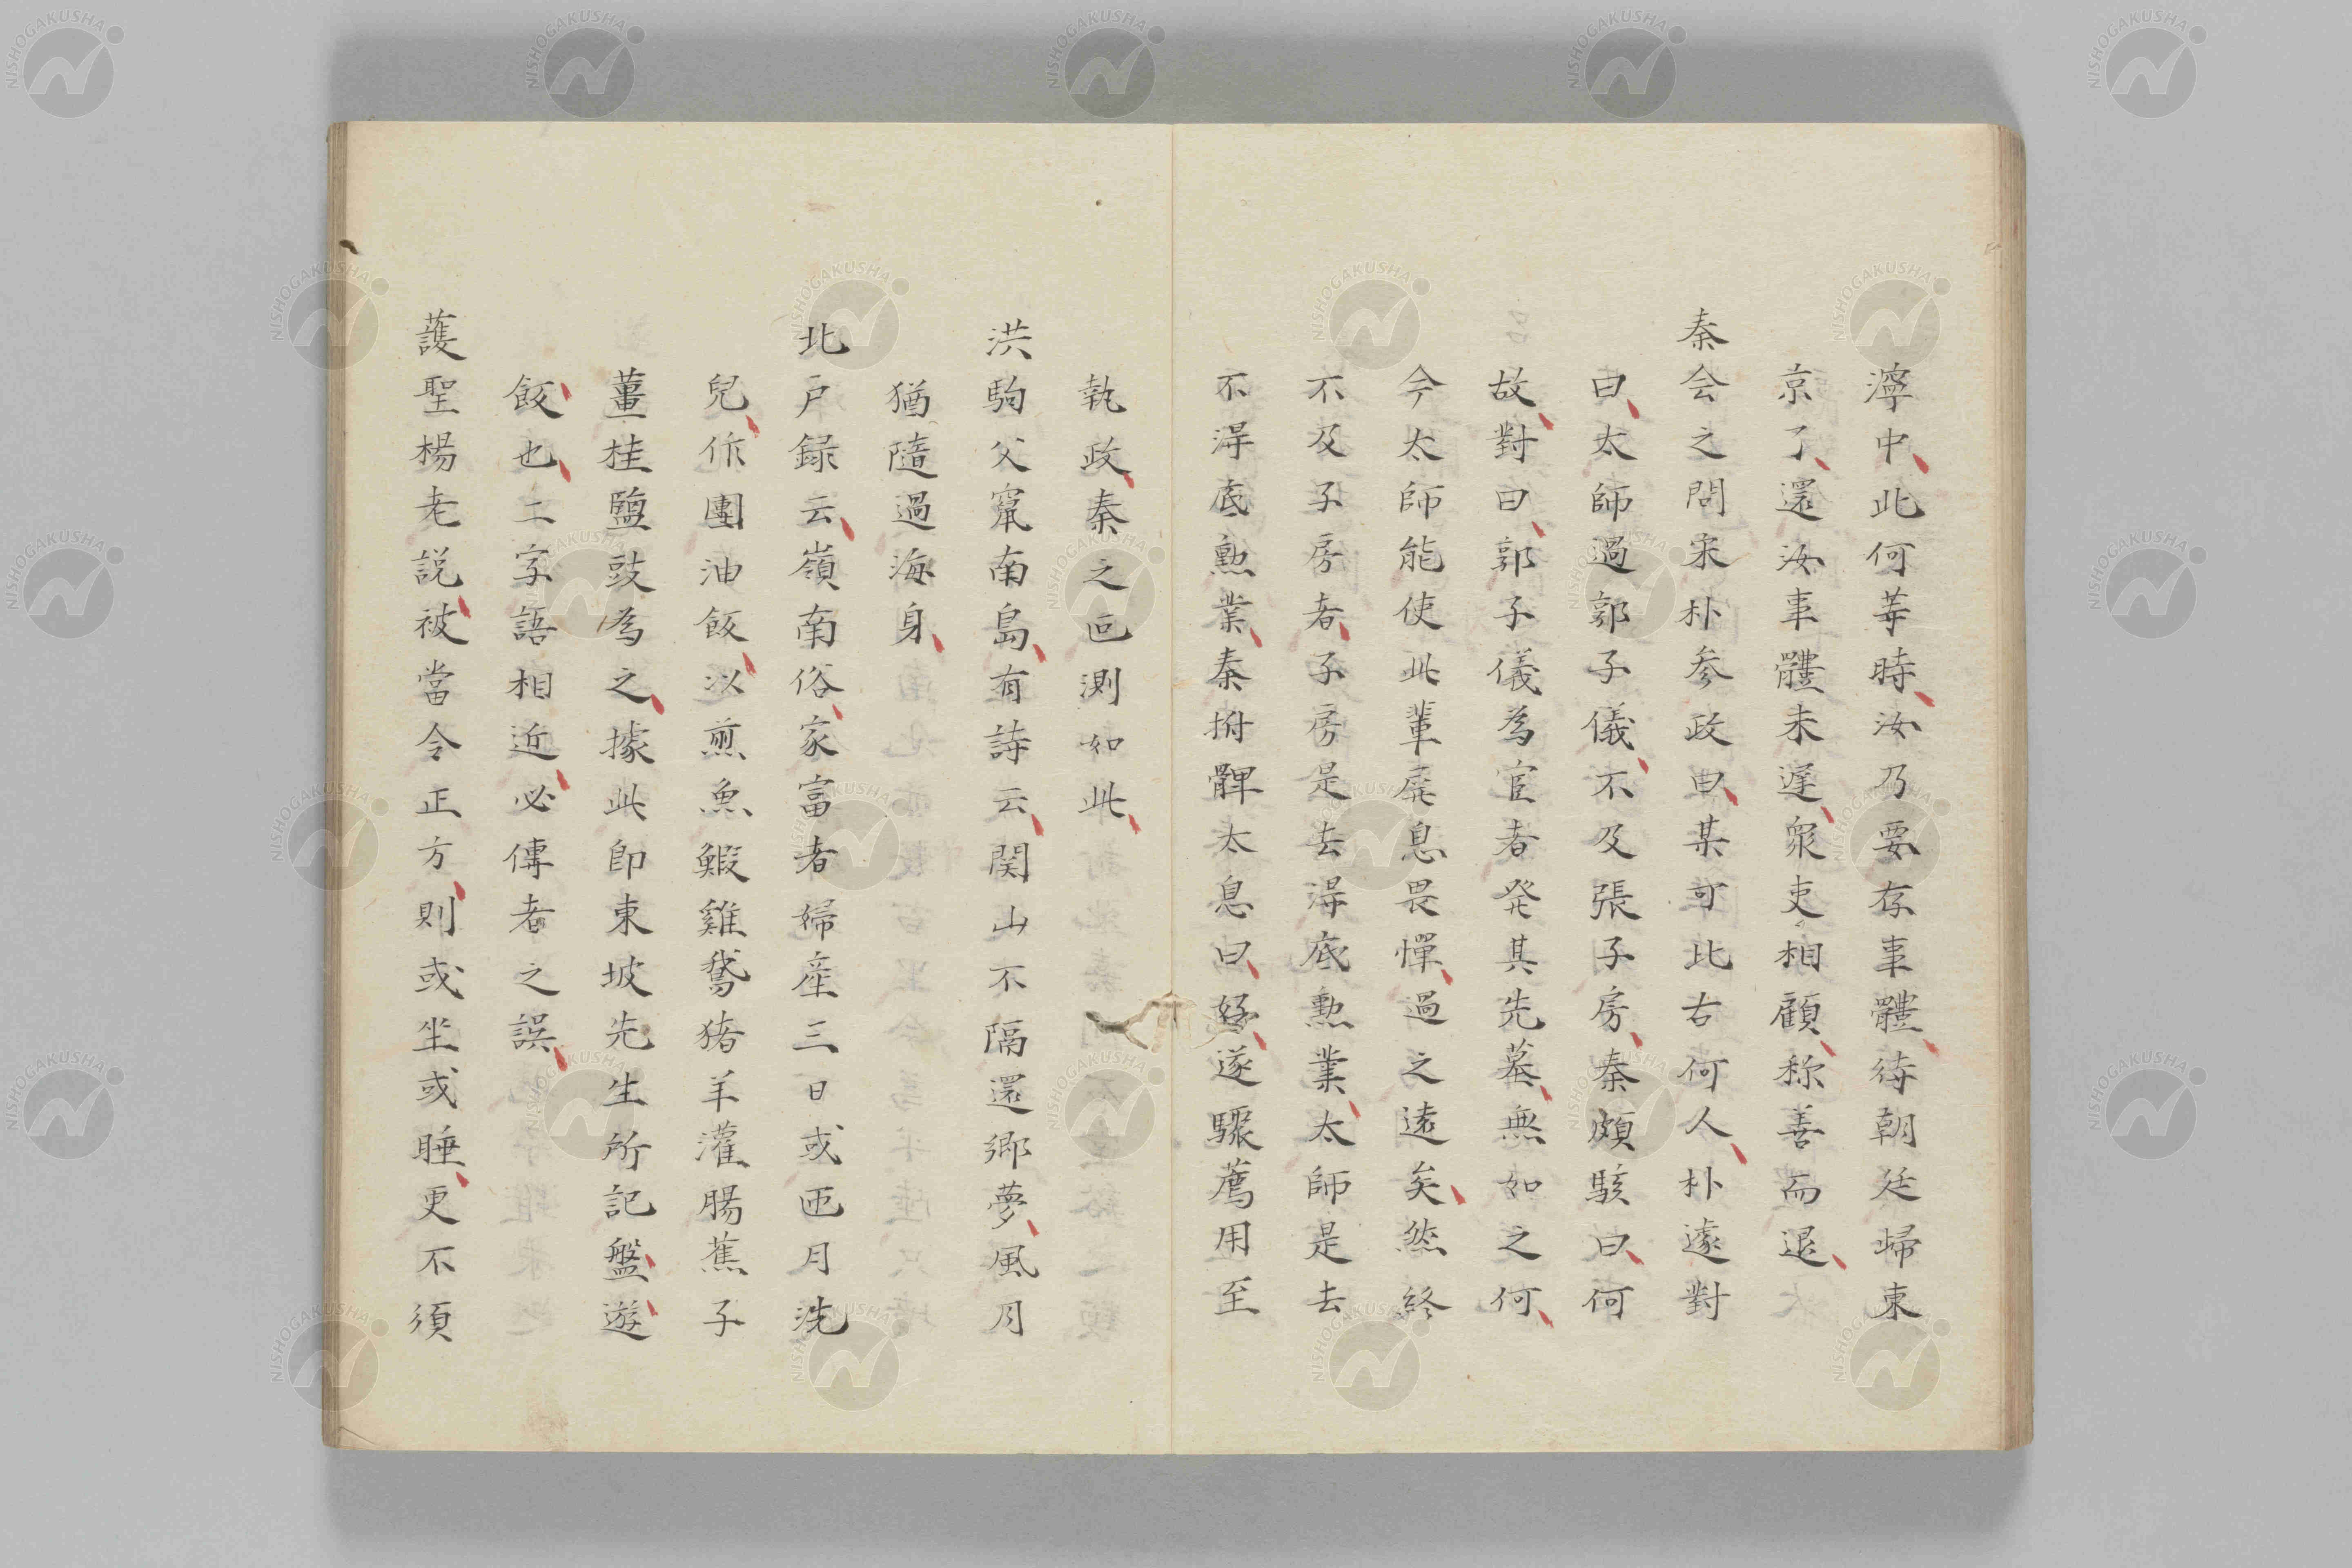 濘中此何等時汝乃要存事體待朝廷歸東
京了還汝事體未遲衆吏相顧称善而退
秦会之問宋朴参政曰某可比右何人朴遽對
曰太師過郭子儀不及張子房秦頗駭曰何
故對曰郭子儀為宦者発其先墓無如之何
今太師能使此輩屏息畏憚過之遠矣然終
不及子房者子房是去得底勲業太師是去
不得底勲業秦拊髀太息曰好遂驟薦用至
執政秦之叵測如此
洪駒父竄南島有詩云関山不隔還郷夢風月
猶隨過海身
北戸録云嶺南俗家富者婦産三日或匝月洗
兒作團油飯以煎魚鰕雞鵞猪羊灌腸蕉子
薑桂鹽豉為之據此即東坡先生所記盤遊
飯也二字語相近必傳者之誤
護聖楊老説被當令正方則或坐或睡更不須
NISHOGAKUSHA